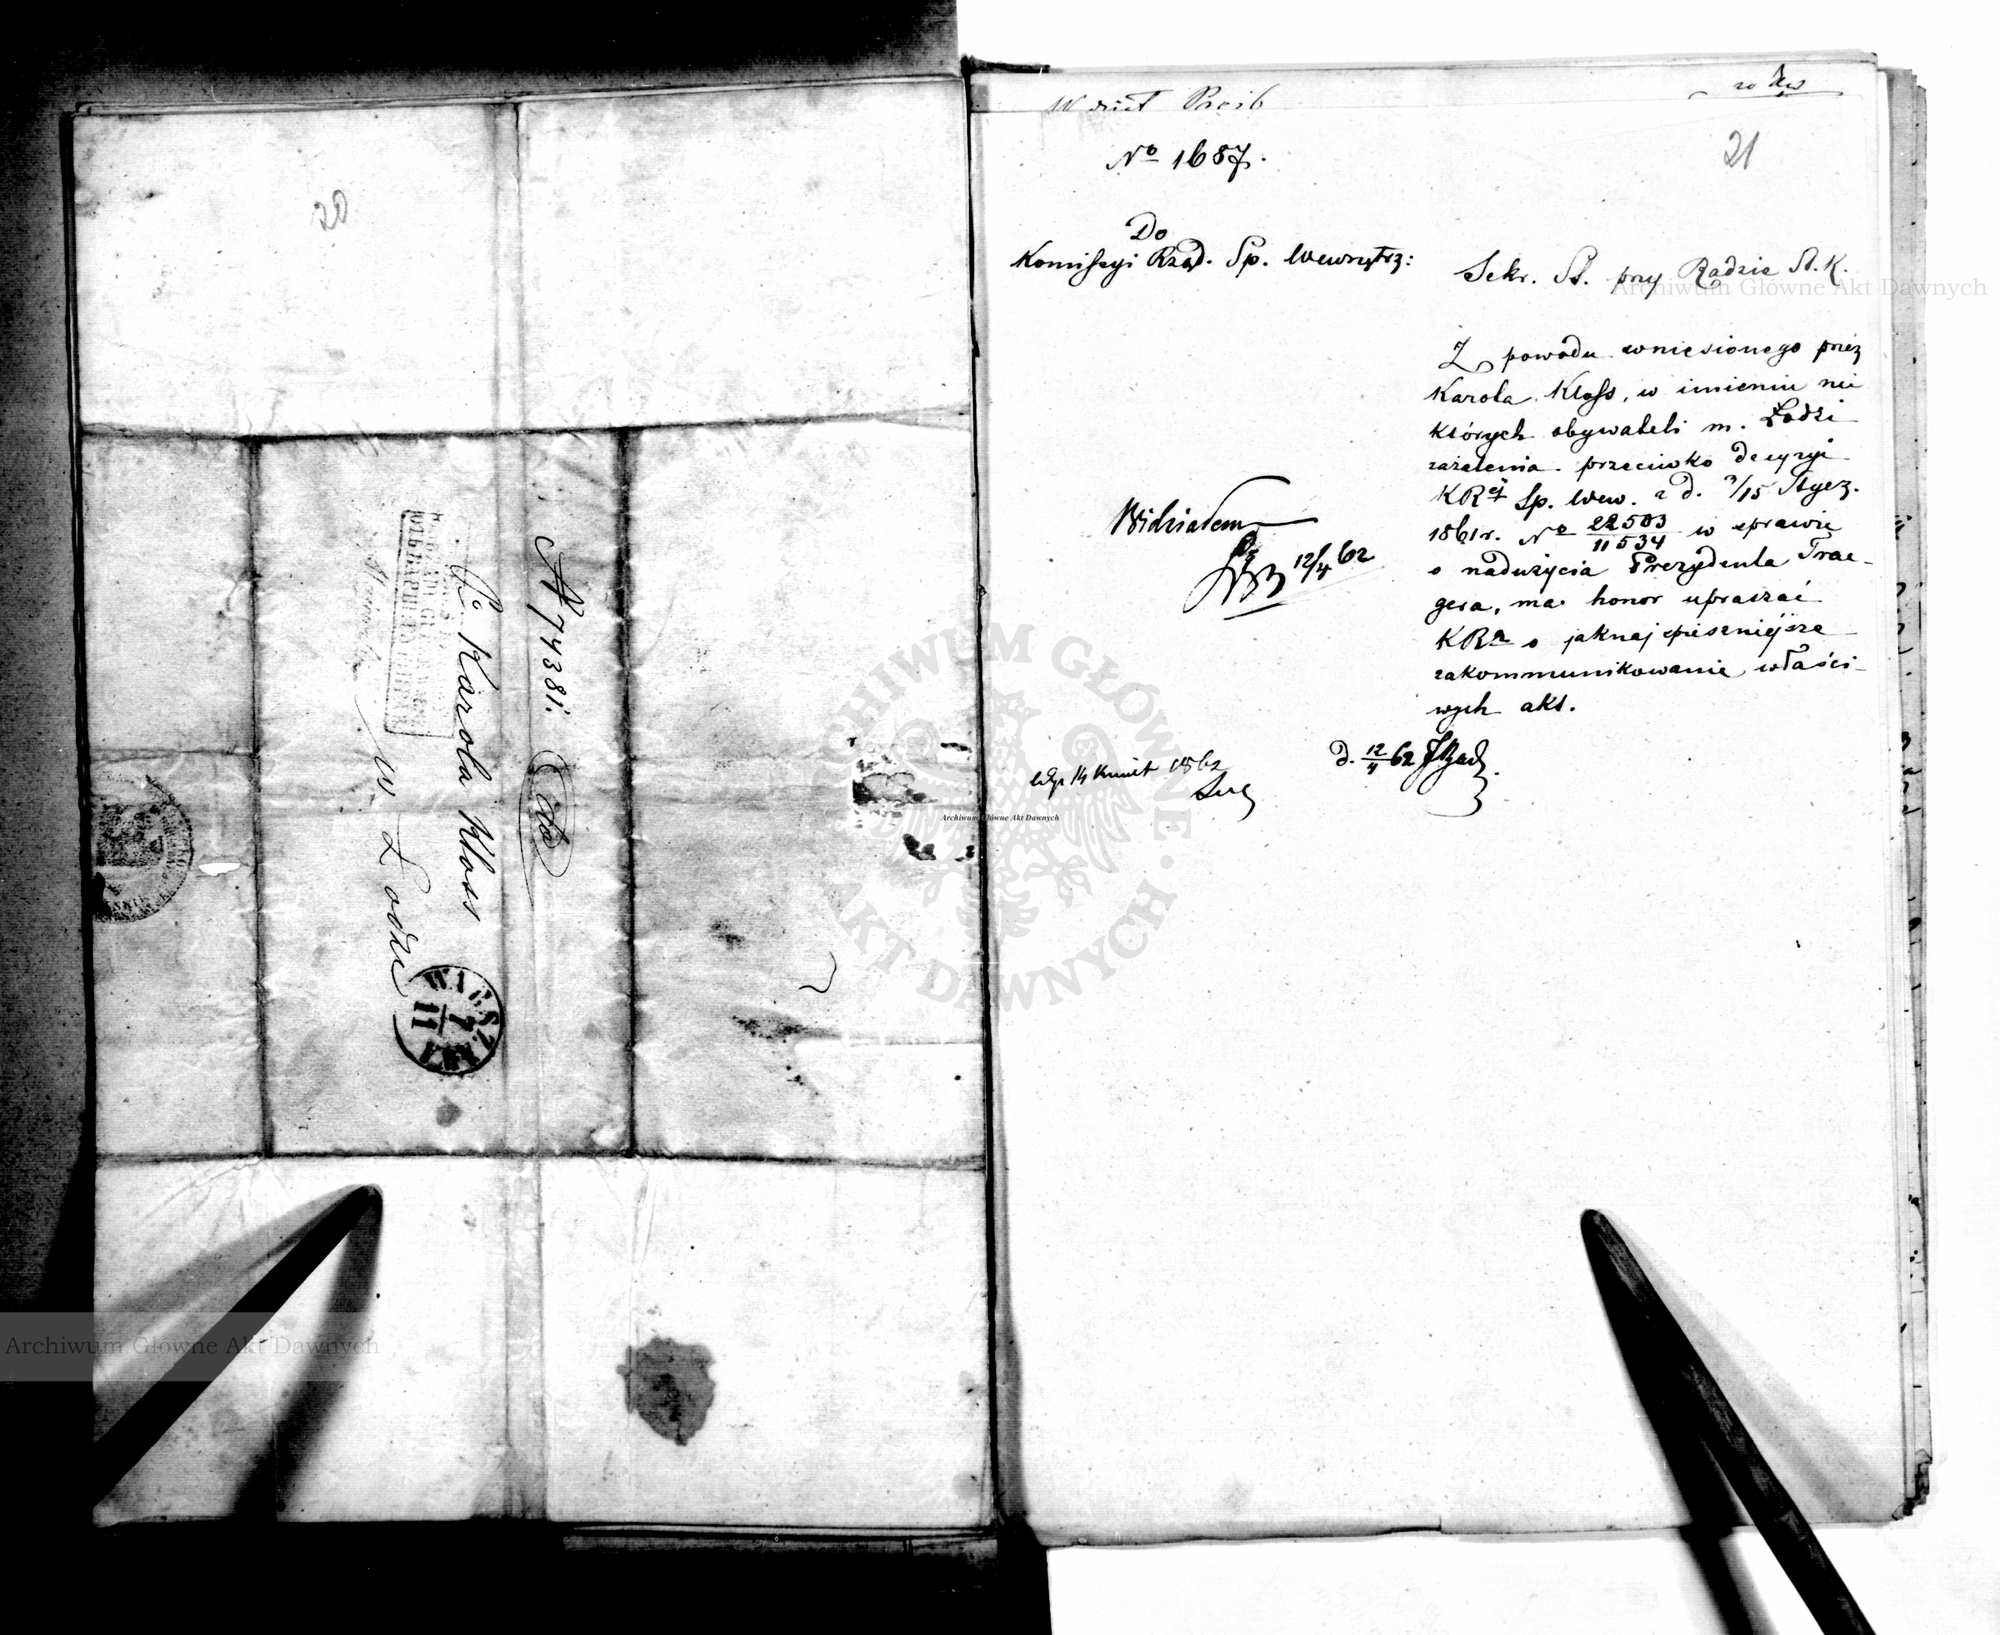 20
N 74381.
Karola Kloss
w Łodzi
WARSZAWA
7
11
Wdział Próśb
21
No 1687.
Do
Komissyi Rząd. Sp. Wewnętrz:
Sekr. St. przy Radzie St. K.
Z powodu wniesionego przez
Karola Kloss, w imieniu nie
których obywateli m. Łodzi
zażalenia przeciwko decyzyi
KRej Sp. Wew. z d. 3/15 Stycz.
1861 r. No 22503/11534 w sprawie
o nadużycia Prezydenta Trae-
gera, ma honor upraszać
KRą o jaknajspieszniejsze
zakommunikowanie właści-
wych akt.
Widziałem
12/4 62
d. 12/4 62
14 Kwiet 1862
Archiwum Główne Akt Dawnych
Archiwum Główne Akt Dawnych
Archiwum Główne Akt Dawnych
ARCHIWUM GŁÓWNE · AKT DAWNYCH ·